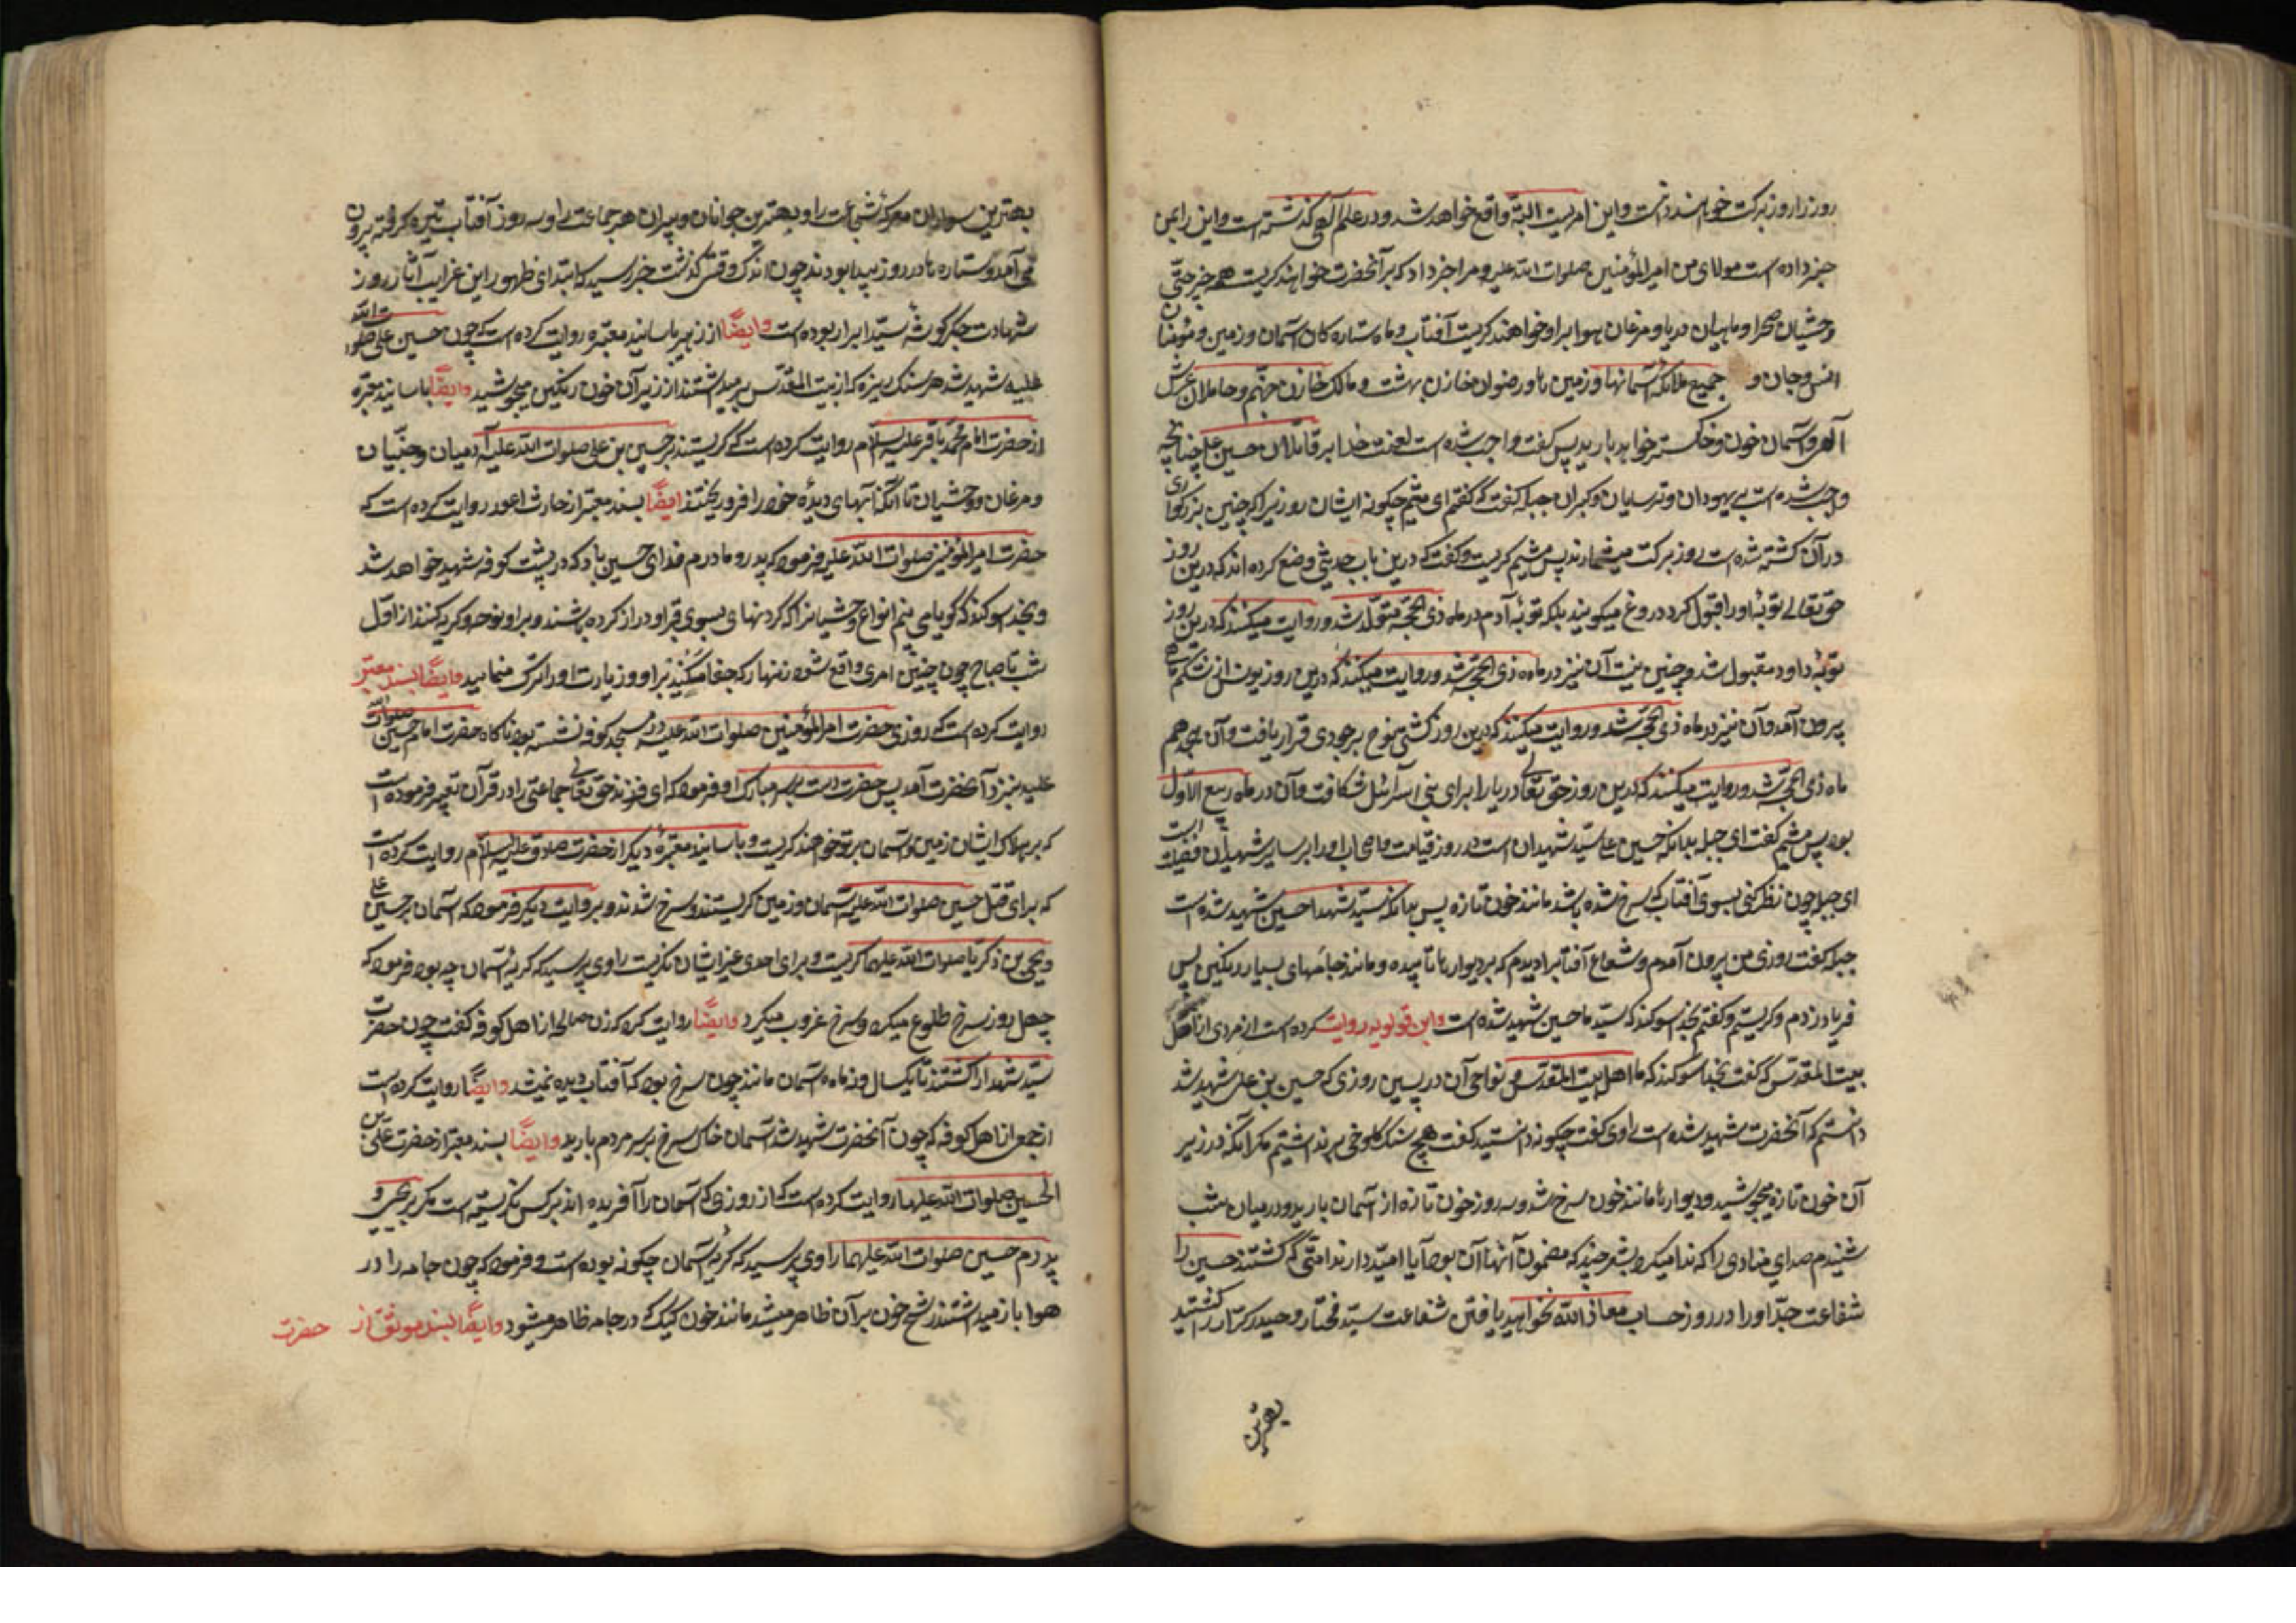 روز را روز برکت خواهند دانست و این امریست البته واقع خواهد شد و در علم الهی گذشته است و این را بمن
خبر داده است مولای من امیرالمؤمنین صلوات الله علیه و مرا خبر داد که بر آنحضرت خواهند کریست همه چیز حتی
وحشیان صحرا و ماهیان دریا و مرغان هوا بر او خواهند کریست آفتاب و ماه ستاره کان آسمان و زمین و مؤمنان
انس و جان و جمیع ملائکهٔ آسمانها و زمین ها و رضوان خازن بهشت و مالک خازن جهنم و حاملان عرش
الهی و آسمان خون و خاکستر خواهد بارید پس گفت واجب شده است لعنت خدا بر قاتلان حسین علی چنانچه
واجب شده است بر یهودان و ترسایان و کبران جبله گفت که گفتم ای میثم چکونه ایشان روزیرا که چنین بزرکواری
در آن کشته شده است روز برکت میشمارند پس میثم کریست و گفت که درین باب حدیثی وضع کرده اند که درین روز
حق تعالی توبهٔ او را قبول کرد دروغ میکویند بلکه توبهٔ آدم در ماه ذی الحجه شد و روایت میکنند که درین روز
توبهٔ داود مقبول شد و چنین نیست آن نیز در ماه ذی الحجه شد و روایت میکنند که درین روز یونس از شکم ماهی
بیرون آمد و آن نیز در ماه ذی الحجه شد و روایت میکنند که درین روز کشتی نوح بر جودی قرار یافت و آن هیجدهم
ماه ذی الحجه شد و روایت میکنند که درین روز حق تعالی دریا را برای بنی اسرائیل شکافت و آن در ماه ربیع الاول
بود پس میثم گفت ای جبله بدانکه حسین علی سید شهیدان است در روز قیامت و اصحاب او را بر سایر شهیدان فضیلت است
ای جبله چون نظر کنی بسوی آفتاب که سرخ شده باشد مانند خون تازه پس بدانکه سید شهدا حسین شهید شده است
جبله گفت روزی من بیرون آمدم و شعاع آفتابرا دیدم که بر دیوارها تابیده و مانند جامهای بسیار رنکین پس
فریاد زدم و کریستم و گفتم بخدا سوکند که سید ما حسین شهید شده است و ابن قولویه روایت کرده است از مردی از اهل
بیت المقدس که گفت بخدا سوکند که ما اهل بیت المقدس و نواحی آن در پسین روزی که حسین بن علی شهید شد
دانستیم که آنحضرت شهید شده است راوی گفت چکونه دانستید گفت هیچ سنک کلوخی بر نداشتیم مکر آنکه در زیر
آن خون تازه میجوشید و دیوارها مانند خون سرخ شد و سه روز خون تازه از آسمان بارید و در میان شب
شنیدم صدای منادی را که ندا میکرد بشعر چند که مضمون آنها آن بود آیا امید دارند امتی که کشتند حسین را
شفاعت جد او را در روز حساب معاذ الله نخواهید یافتن شفاعت سید مختار و حیدر کرار را کشتید
بهترین
بهترین سواران معرکهٔ شجاعت را و بهترین جوانان و پیران هر جماعت را و سه روز آفتاب تیره کرفته بیرون
می آمد و ستاره ها در روز پیدا بودند چون اندک وقتی گذشت خبر رسید که ابتدای ظهور این غرایب آثار روز
شهادت جکرکوشهٔ سید ابرار بوده است وایضًا از زهری باسانید معتبره روایت کرده است که چون حسین علی صلوات الله
علیه شهید شد هر سنک ریزه که از بیت المقدس بر میداشتند از زیر آن خون رنکین میجوشید وایضًا باسانید معتبره
از حضرت امام محمد باقر علیه السلام روایت کرده است که کریستند بر حسین بن علی صلوات الله علیه آدمیان و جنیان
و مرغان و وحشیان تا آنکه آبهای دیدهٔ خود را فرو ریختند ایضًا بسند معتبر از حارث اعور روایت کرده است که
حضرت امیرالمؤمنین صلوات الله علیه فرمود که پدر و مادرم فدای حسین باد که در پشت کوفه شهید خواهد شد
و بخدا سوکند که گویا می بینم انواع وحشیانرا که گردنهای بسوی قبر او دراز کرده باشند و بر او نوحه و کریه کنند از اول
شب تا صباح چون چنین امری واقع شود زنهار که جفا مکنید بر او و زیارت او را ترک منمائید وایضًا بسند معتبر
روایت کرده است که روزی حضرت امیرالمؤمنین صلوات الله علیه در مسجد کوفه نشسته بود ناکاه حضرت امام حسین صلوات الله
علیه بنزد آنحضرت آمد پس حضرت دست بر سر مبارک او فرمود که ای فرزند حق تعالی جماعتی را در قرآن تعبیر فرموده است
که بر هلاک ایشان زمین و آسمان بر تو خواهند کریست و باسانید معتبرهٔ دیکر از حضرت صادق علیه السلام روایت کرده است
که برای قتل حسین صلوات الله علیه آسمان و زمین کریستند و سرخ شدند و بروایت دیکر فرمود که آسمان بر حسین علی
و یحیی بن ذکریا صلوات الله علیهما کریست و برای احدی غیر ایشان نکریست راوی پرسید که کریهٔ آسمان چه بود فرمود که
چهل روز سرخ طلوع میکرد و سرخ غروب میکرد وایضًا روایت کرد که زن صالحه از اهل کوفه گفت چون حضرت
سید شهدا را کشتند تا یکسال و نه ماه آسمان مانند چون سرخ بود که آفتاب دیده نمیشد وایضًا روایت کرده است
از جمعی از اهل کوفه که چون آنحضرت شهید شد آسمان خاک سرخ بر سر مردم بارید وایضًا بسند معتبر از حضرت علی بن
الحسین صلوات الله علیهما روایت کرده است که از روزی که آسمان را آفریده اند بر کس نکریسته است مکر بر یحیی و
پدرم حسین صلوات الله علیهما راوی پرسید که کریهٔ آسمان چکونه بوده است و فرمود که چون جامه را در
هوا باز میداشتند رشح خون بر آن ظاهر میشد مانند خون کیک که در جامه ظاهر میشود وایضًا بسند موثق از حضرت